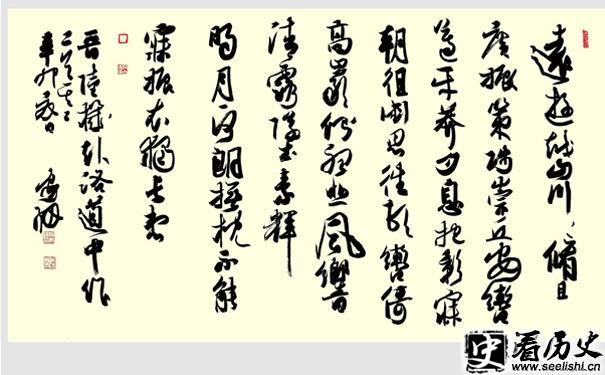 遠遊越山川〻脩且
廣振策陟崇丘安轡
遵平莽夕息抱影寐
朝徂銜思往頓轡倚
高巖側聽悲風響
清露墜素輝
明月一何朗撫枕不能
寐振衣獨長想
晋陸機赴洛道中作
二首之二
辛卯
史 看历史
www.seelishi.cn